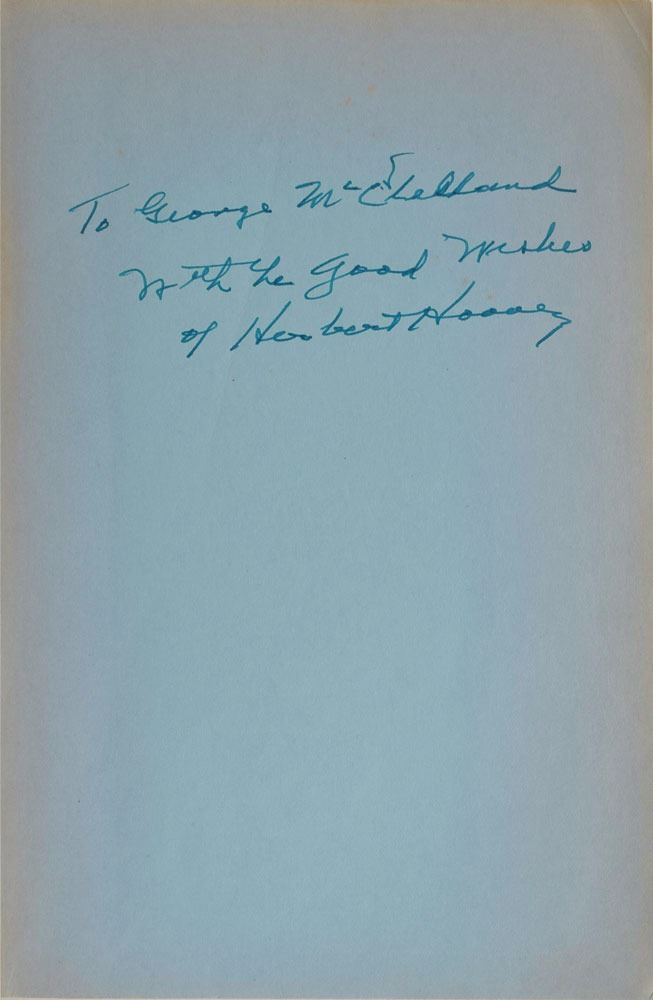 To George McClelland
With the Good Wishes
of Herbert Hoover